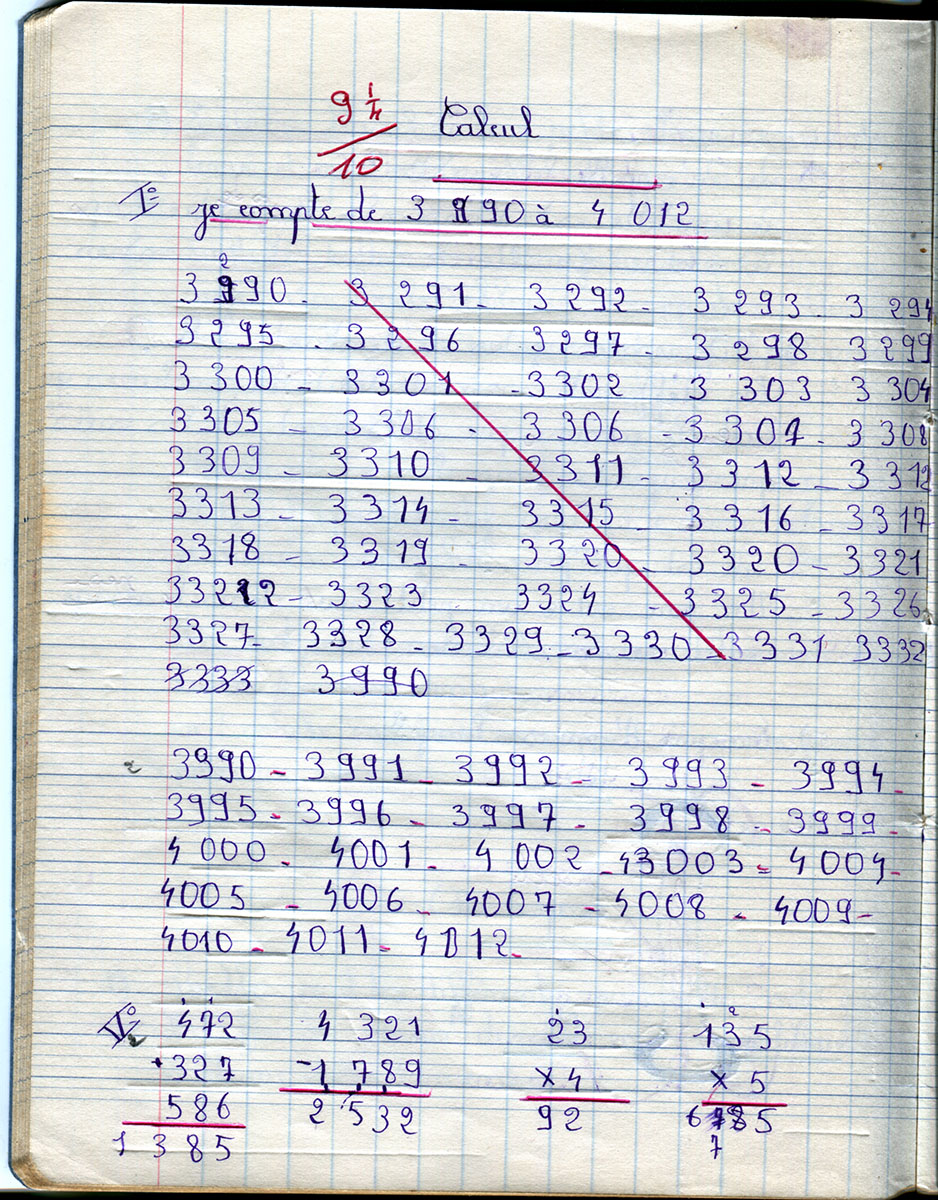 9 1/4
Calcul
10
I° je compte de 3 990 à 4 012
2
3 990 - 3 291 - 3 292 - 3 293 - 3 294
3 295 - 3 296 3297 - 3 298 3299
3 300 - 3301 - 3302 3 303 3 304
3305 - 3306 - 3306 - 3307 - 3308
3309 - 3310 - 3311 - 3312 - 3312
3313 - 3314 - 3315 - 3316 - 3317
3318 - 3319 - 3320 - 3320 - 3321
3322 - 3323 3324 - 3325 - 3326
3327 - 3328 - 3329 - 3330 - 3331 3332
3333 3990
3990 - 3991 - 3992 - 3993 - 3994 -
3995 - 3996 - 3997 - 3998 - 3999 -
4 000 - 4001 - 4 002 - 43003 - 4004 -
4005 - 4006 - 4007 - 4008 - 4009 -
4010 - 4011 - 4012 -
472 4 321 23 135
+ 327 - 1 789 × 4 × 5
586 2 532 92 685
1 385 7